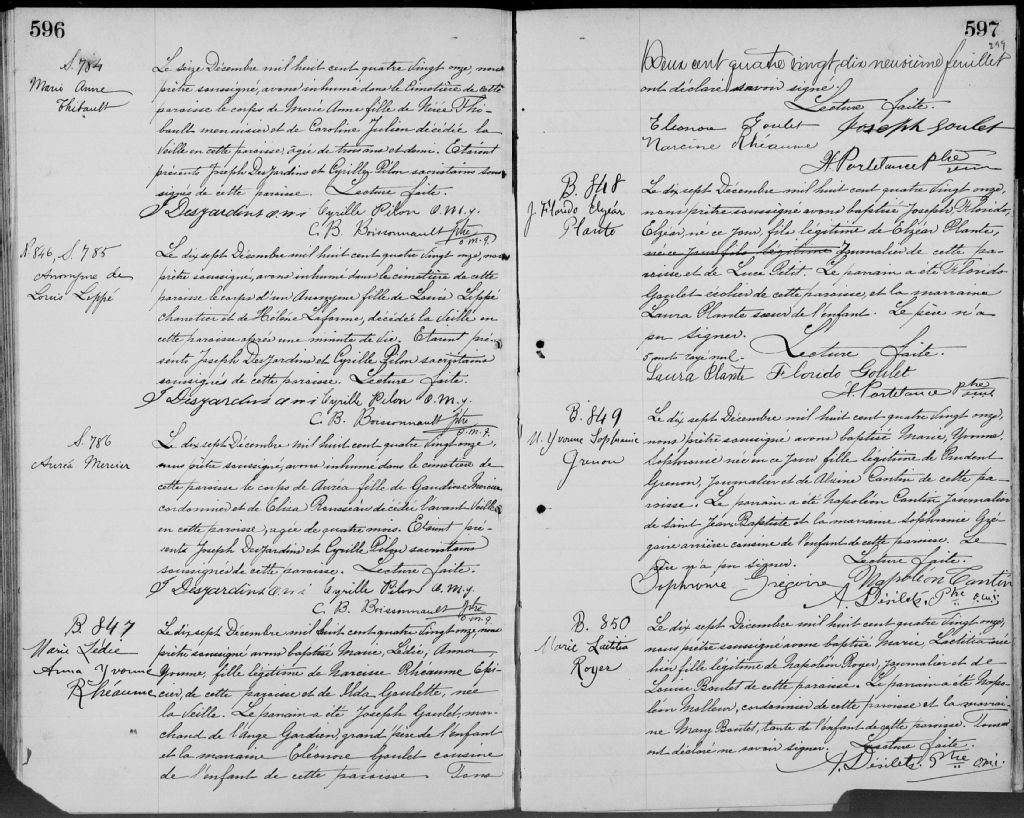 596
S. 784
Marie Anne
Thibault
Le seize Décembre mil huit cent quatre vingt onze, nous
prêtre soussigné, avons inhumé dans le cimetière de cette
paroisse le corps de Marie Anne fille de Thi-
bault menuisier et de Caroline Julien décédée la
veille en cette paroisse, agée de trois ans et demi. Etaient
présents Joseph Desjardins et Cyrille Pilon sacristains sous-
signés de cette paroisse. Lecture faite.
J Desjardins o m i Cyrille Pilon O. M. I.
C. B. Boissonnault ptre
o. m. i.
N. 846, S. 785
Anonyme de
Louis Leppé
Le dix sept Décembre mil huit cent quatre vingt onze, nous
prêtre soussigné, avons inhumé dans le cimetière de cette
paroisse le corps d'un Anonyme fille de Louis Leppé
charretier et de Hélène Laforme, décédée la veille en
cette paroisse après une minute de vie. Etaient pré-
sents Joseph Desjardins et Cyrille Pilon sacristains
soussignés de cette paroisse. Lecture faite.
J Desjardins o m i Cyrille Pilon O. M. I.
C. B. Boissonnault ptre
o. m. i.
S. 786
Auréa Mercier
Le dix sept Décembre mil huit cent quatre vingt onze,
nous prêtre soussigné, avons inhumé dans le cimetière de
cette paroisse le corps de Auréa fille de Gaudiose Mercier
cordonnier et de Eliza Rousseau décédée l'avant veille
en cette paroisse, agée de quatre mois. Etaient pré-
sents Joseph Desjardins et Cyrille Pilon sacristains
soussignés de cette paroisse. Lecture faite.
J Desjardins o m i Cyrille Pilon O. M. I.
C. B. Boissonnault ptre
o. m. i.
B. 847
Marie Lédie
Anna Yvonne
Rhéaume
Le dix sept Décembre mil huit cent quatre vingt onze nous
prêtre soussigné avons baptisé Marie, Lédie, Anna,
Yvonne, fille légitime de Narcisse Rhéaume Epi-
cier, de cette paroisse et de Ilda Goulette, née
la veille. Le parrain a été Joseph Goulet, mar-
chand de l'Ange Gardien, grand père de l'enfant
et la marraine Eléonore Goulet cousine
de l'enfant de cette paroisse Tous
597
299
Deux cent quatre vingt dix neuvième feuillet
ont déclaré savoir signé.
Lecture faite.
Eleonore Goulet Joseph Goulet
Narcisse Rhéaume
H. Portelance ptre
B. 848
J. Florido Elzéar
Plante
Le dix sept Décembre mil huit cent quatre vingt onze,
nous prêtre soussigné avons baptisé Joseph, Florido,
Elzéar, né ce jour, fils légitime de Elzéar Plante,
né ce jour fils légitime Journalier de cette pa-
roisse et de Luce Petit. Le parrain a été Florido
Goulet écolier de cette paroisse, et la marraine
Laura Plante sœur de l'enfant. Le père n'a
pu signer.
5 mots rayé nul. Lecture faite.
Laura Plante Florido Goulet
H. Portelance ptre
B. 849
M. Yvonne Sophronie
Grenon
Le dix sept Décembre mil huit cent quatre vingt onze,
nous prêtre soussigné avons baptisé Marie, Yvonne,
Sophronie née en ce jour fille légitime de Prudent
Grenon, Journalier et de Alxine Cantin de cette pa-
roisse. Le parrain a été Napoléon Cantin Journalier
de Saint Jean Baptiste et la marraine Sophronie Gré-
goire arrière cousine de l'enfant de cette paroisse. Le
père n'a pu signer. Lecture faite.
Sophronie Grégoire Napoléon Cantin
A. Désilets, Ptre o.m.i
B. 850
Marie Lætitia
Royer
Le dix sept Décembre mil huit cent quatre vingt onze,
nous prêtre soussigné avons baptisé Marie, Laetitia née
hier fille légitime de Napoléon Royer, Journalier et de
Louise Boutet de cette paroisse. Le parrain a été Napo-
léon Molleur, cordonnier de cette paroisse et la marrai-
ne Mary Boutet, tante de l'enfant de cette paroisse. Tous
ont déclaré ne savoir signer. Lecture faite.
A. Désilets, Ptre omi.